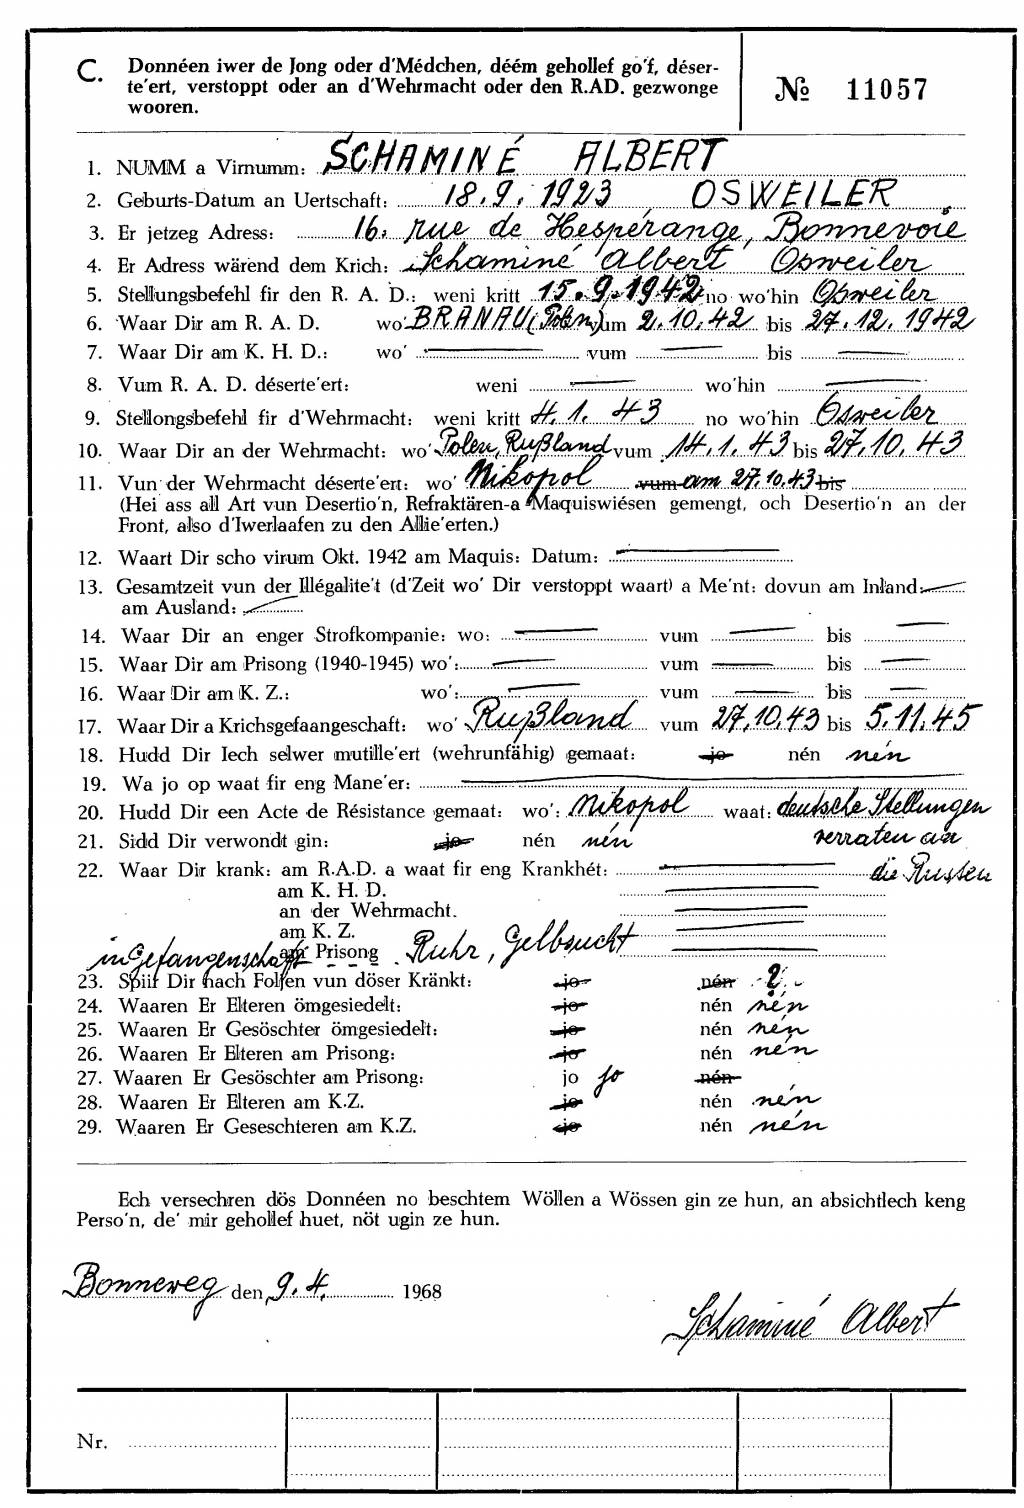 C. Donnéen iwer de Jong oder d'Médchen, déém gehollef go'f, déser-
te'ert, verstoppt oder an d'Wehrmacht oder den R.AD. gezwonge
wooren.
№ 11057
1. NUMM a Virnumm: SCHAMINÉ ALBERT
2. Geburts-Datum an Uertschaft: 18.9.1923 OSWEILER
3. Er jetzeg Adress: 16, rue de Hespérange, Bonnevoie
4. Er Adress wärend dem Krich: Schaminé Albert Osweiler
5. Stellungsbefehl fir den R. A. D.: weni kritt 15.9.1942 no wo'hin Osweiler
6. Waar Dir am R. A. D. wo' BRANAU (Polen) um 2.10.42 bis 27.12.1942
7. Waar Dir am K. H. D.: wo' vum bis
8. Vum R. A. D. déserte'ert: weni wo'hin
9. Stellongsbefehl fir d'Wehrmacht: weni kritt 4.1.43 no wo'hin Osweiler
10. Waar Dir an der Wehrmacht: wo' Polen, Rußland vum 14.1.43 bis 27.10.43
11. Vun der Wehrmacht déserte'ert: wo' Nikopol vum am 27.10.43 bis
(Hei ass all Art vun Desertio'n, Refraktären-a Maquiswiésen gemengt, och Desertio'n an der
Front, also d'Iwerlaafen zu den Allie'erten.)
12. Waart Dir scho virum Okt. 1942 am Maquis: Datum:
13. Gesamtzeit vun der Illégalite't (d'Zeit wo' Dir verstoppt waart) a Me'nt: dovun am Inland:
am Ausland:
14. Waar Dir an enger Strofkompanie: wo: vum bis
15. Waar Dir am Prisong (1940-1945) wo': vum bis
16. Waar Dir am K. Z.: wo': vum bis
17. Waar Dir a Krichsgefaangeschaft: wo' Rußland vum 27.10.43 bis 5.11.45
18. Hudd Dir Iech selwer mutille'ert (wehrunfähig) gemaat: jo nén nén
19. Wa jo op waat fir eng Mane'er:
20. Hudd Dir een Acte de Résistance gemaat: wo': Nikopol waat: deutsche Stellungen
21. Sidd Dir verwondt gin: jo nén nén verraten an
22. Waar Dir krank: am R.A.D. a waat fir eng Krankhét: die Russen
am K. H. D.
an der Wehrmacht.
am K. Z.
in Gefangenschaft am Prisong Ruhr, Gelbsucht
23. Spiit Dir nach Folfen vun döser Kränkt: jo nén ?
24. Waaren Er Elteren ömgesiedelt: jo nén nén
25. Waaren Er Gesöschter ömgesiedelt: jo nén nén
26. Waaren Er Elteren am Prisong: jo nén nén
27. Waaren Er Gesöschter am Prisong: jo jo nén
28. Waaren Er Elteren am K.Z. jo nén nén
29. Waaren Er Geseschteren am K.Z. jo nén nén
Ech versechren dös Donnéen no beschtem Wöllen a Wössen gin ze hun, an absichtlech keng
Perso'n, de' mir gehollef huet, nöt ugin ze hun.
Bonneweg den 9.4. 1968
Schaminé Albert
Nr.